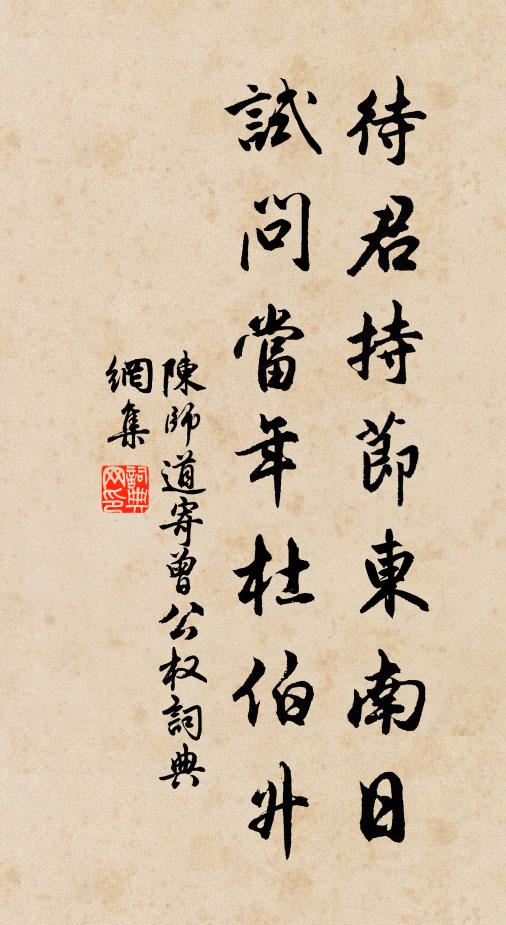 待君持節東南日
試問當年杜伯升
陳師道寄曾公权詞典
網集
詞典
网印